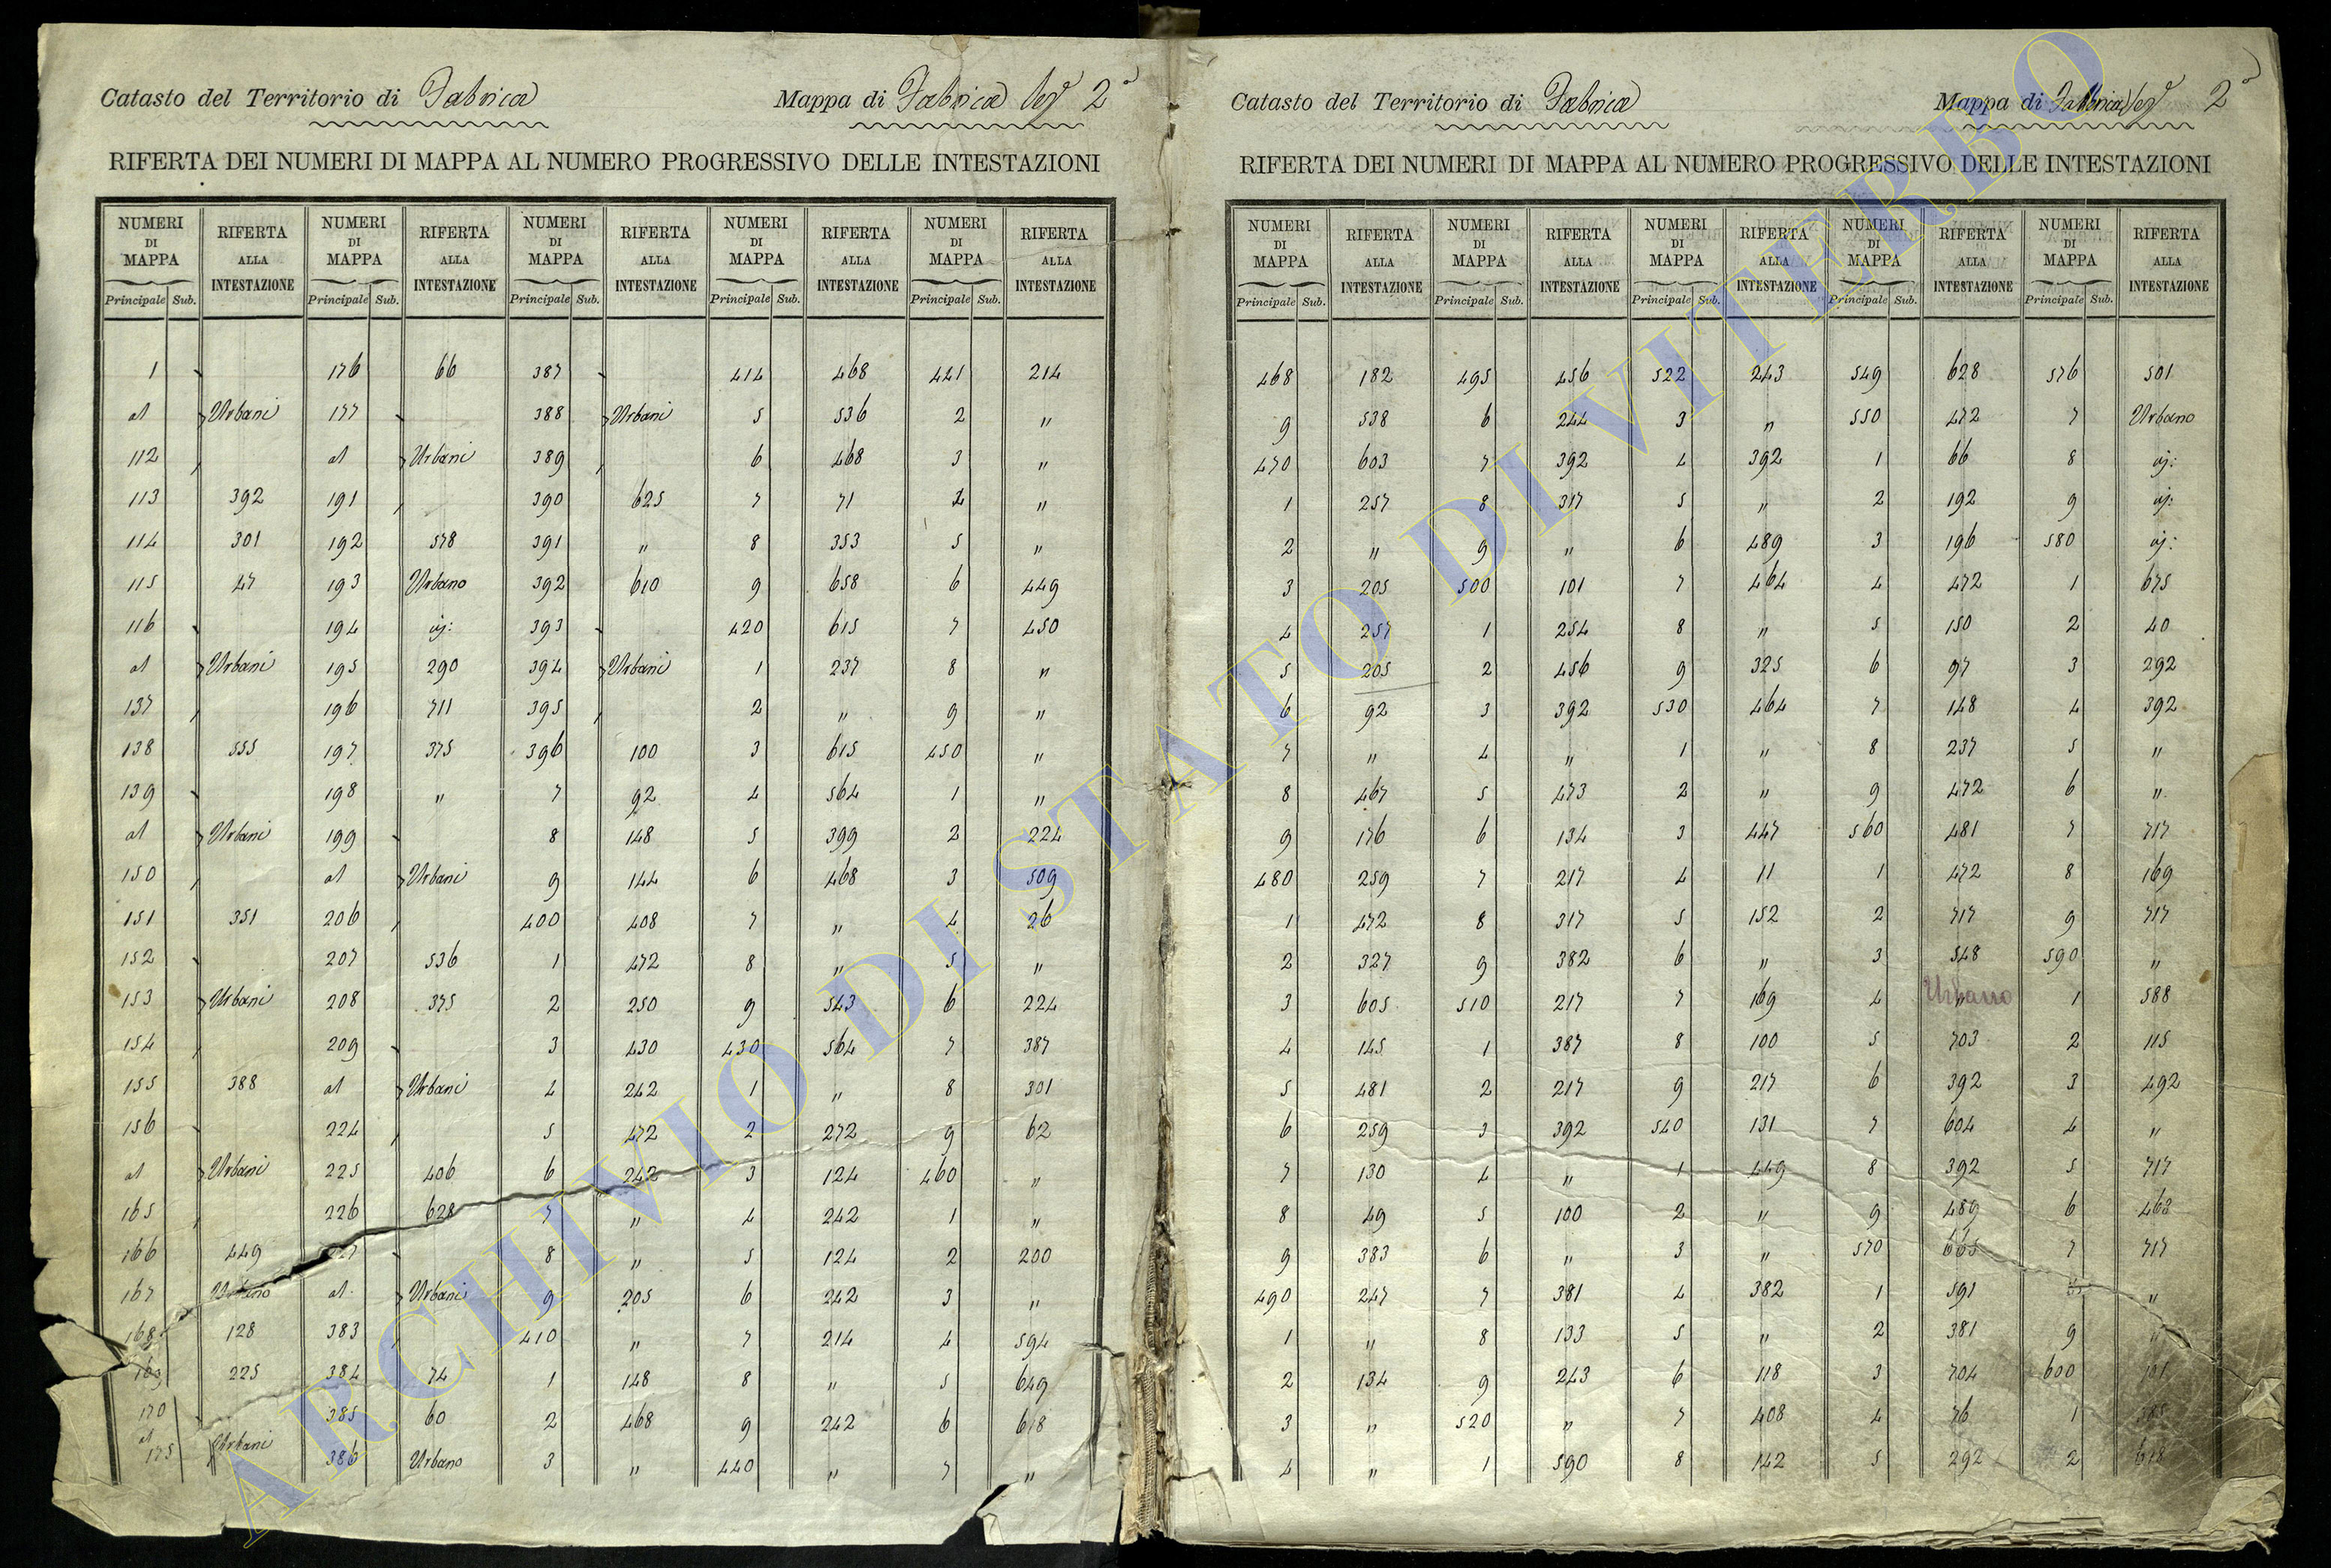 Catasto del Territorio di Fabrica Mappa di Fabrica Sez.e 2a
RIFERTA DEI NUMERI DI MAPPA AL NUMERO PROGRESSIVO DELLE INTESTAZIONI
NUMERI DI MAPPA RIFERTA ALLA INTESTAZIONE NUMERI DI MAPPA RIFERTA ALLA INTESTAZIONE NUMERI DI MAPPA RIFERTA ALLA INTESTAZIONE NUMERI DI MAPPA RIFERTA ALLA INTESTAZIONE NUMERI DI MAPPA RIFERTA ALLA INTESTAZIONE
Principale Sub. Principale Sub. Principale Sub. Principale Sub. Principale Sub.
1 176 66 387 414 468 441 214
al Urbani 177 388 Urbani 5 536 2 "
112 al Urbani 389 6 468 3 "
113 392 191 390 625 7 71 4 "
114 301 192 578 391 " 8 353 5 "
115 47 193 Urbano 392 610 9 658 6 449
116 194 393 420 615 7 450
al Urbani 195 290 394 Urbani 1 237 8 "
137 196 711 395 2 " 9 "
138 555 197 375 396 100 3 615 450 "
139 198 " 7 92 4 564 1 "
al Urbani 199 8 148 5 399 2 224
150 al Urbani 9 144 6 468 3 509
151 351 206 400 408 7 " 4 26
152 207 536 1 472 8 " 5 "
153 Urbani 208 375 2 250 9 543 6 224
154 209 3 430 430 564 7 387
155 388 al Urbani 4 242 1 " 8 301
156 224 5 472 2 272 9 62
al Urbani 225 406 6 242 3 124 460 "
165 226 628 7 " 4 242 1 "
166 449 8 " 5 124 2 200
167 Urbano al Urbani 9 205 6 242 3 "
168 128 383 410 " 7 214 4 594
169 225 384 74 1 148 8 " 5 649
170 385 60 2 468 9 242 6 618
al 175 Urbani 386 Urbano 3 " 440 " 7 "
Catasto del Territorio di Fabrica Mappa di Fabrica Sez.e 2a
RIFERTA DEI NUMERI DI MAPPA AL NUMERO PROGRESSIVO DELLE INTESTAZIONI
NUMERI DI MAPPA RIFERTA ALLA INTESTAZIONE NUMERI DI MAPPA RIFERTA ALLA INTESTAZIONE NUMERI DI MAPPA RIFERTA ALLA INTESTAZIONE NUMERI DI MAPPA RIFERTA ALLA INTESTAZIONE NUMERI DI MAPPA RIFERTA ALLA INTESTAZIONE
Principale Sub. Principale Sub. Principale Sub. Principale Sub. Principale Sub.
468 182 495 456 522 243 549 628 576 501
9 538 6 244 3 " 550 472 7 Urbano
470 603 7 392 4 392 1 66 8
1 257 8 317 5 " 2 192 9
2 " 9 " 6 489 3 196 580
3 205 500 101 7 464 4 472 1 675
4 257 1 254 8 " 5 150 2 40
5 205 2 456 9 325 6 97 3 292
6 92 3 392 530 464 7 148 4 392
7 " 4 " 1 " 8 237 5 "
8 467 5 473 2 " 9 472 6 "
9 176 6 134 3 447 560 481 7 717
480 259 7 217 4 11 1 472 8 169
1 472 8 317 5 152 2 717 9 717
2 327 9 382 6 " 3 548 590 "
3 605 510 217 7 169 4 Urbano 1 588
4 145 1 387 8 100 5 703 2 115
5 481 2 217 9 217 6 392 3 492
6 259 3 392 540 131 7 604 4 "
7 130 4 " 1 449 8 392 5 717
8 49 5 100 2 " 9 489 6 463
9 383 6 " 3 " 570 665 7 717
490 247 7 381 4 382 1 591 "
1 " 8 133 5 " 2 381 9 "
2 134 9 243 6 118 3 704 600 101
3 " 520 " 7 408 4 76 1
4 " 1 590 8 142 5 292 2 618
ARCHIVIO DI STATO DI VITERBO